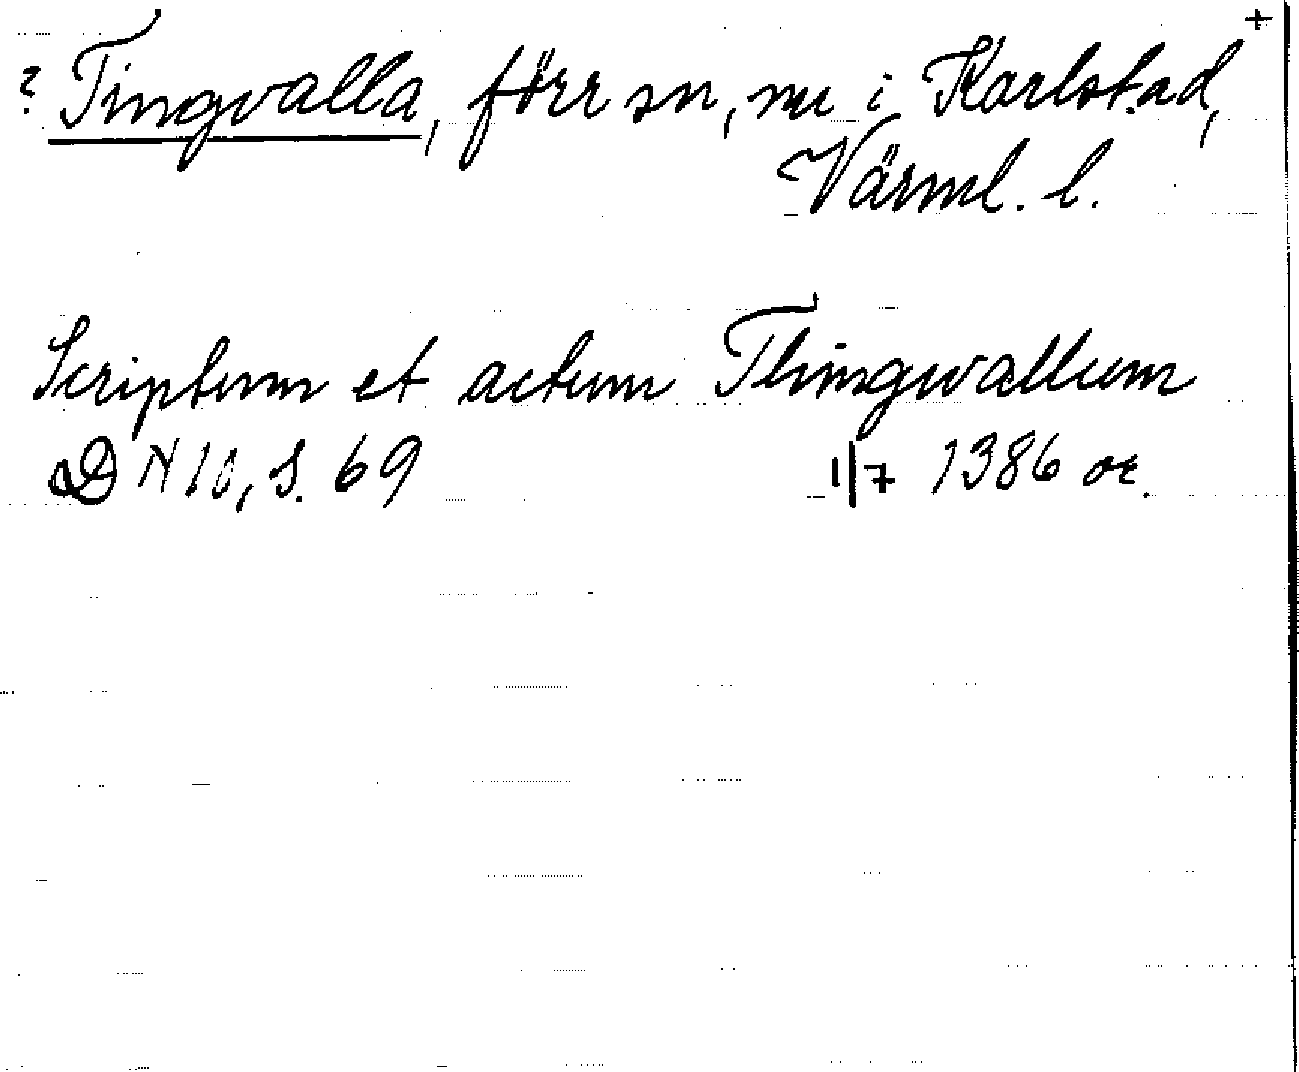 +
? Tingvalla, förr sn, nu i Karlstad,
Värml. l.
Scriptum et actum Thingwallum
DN 10, s. 69 1/7 1386 or.